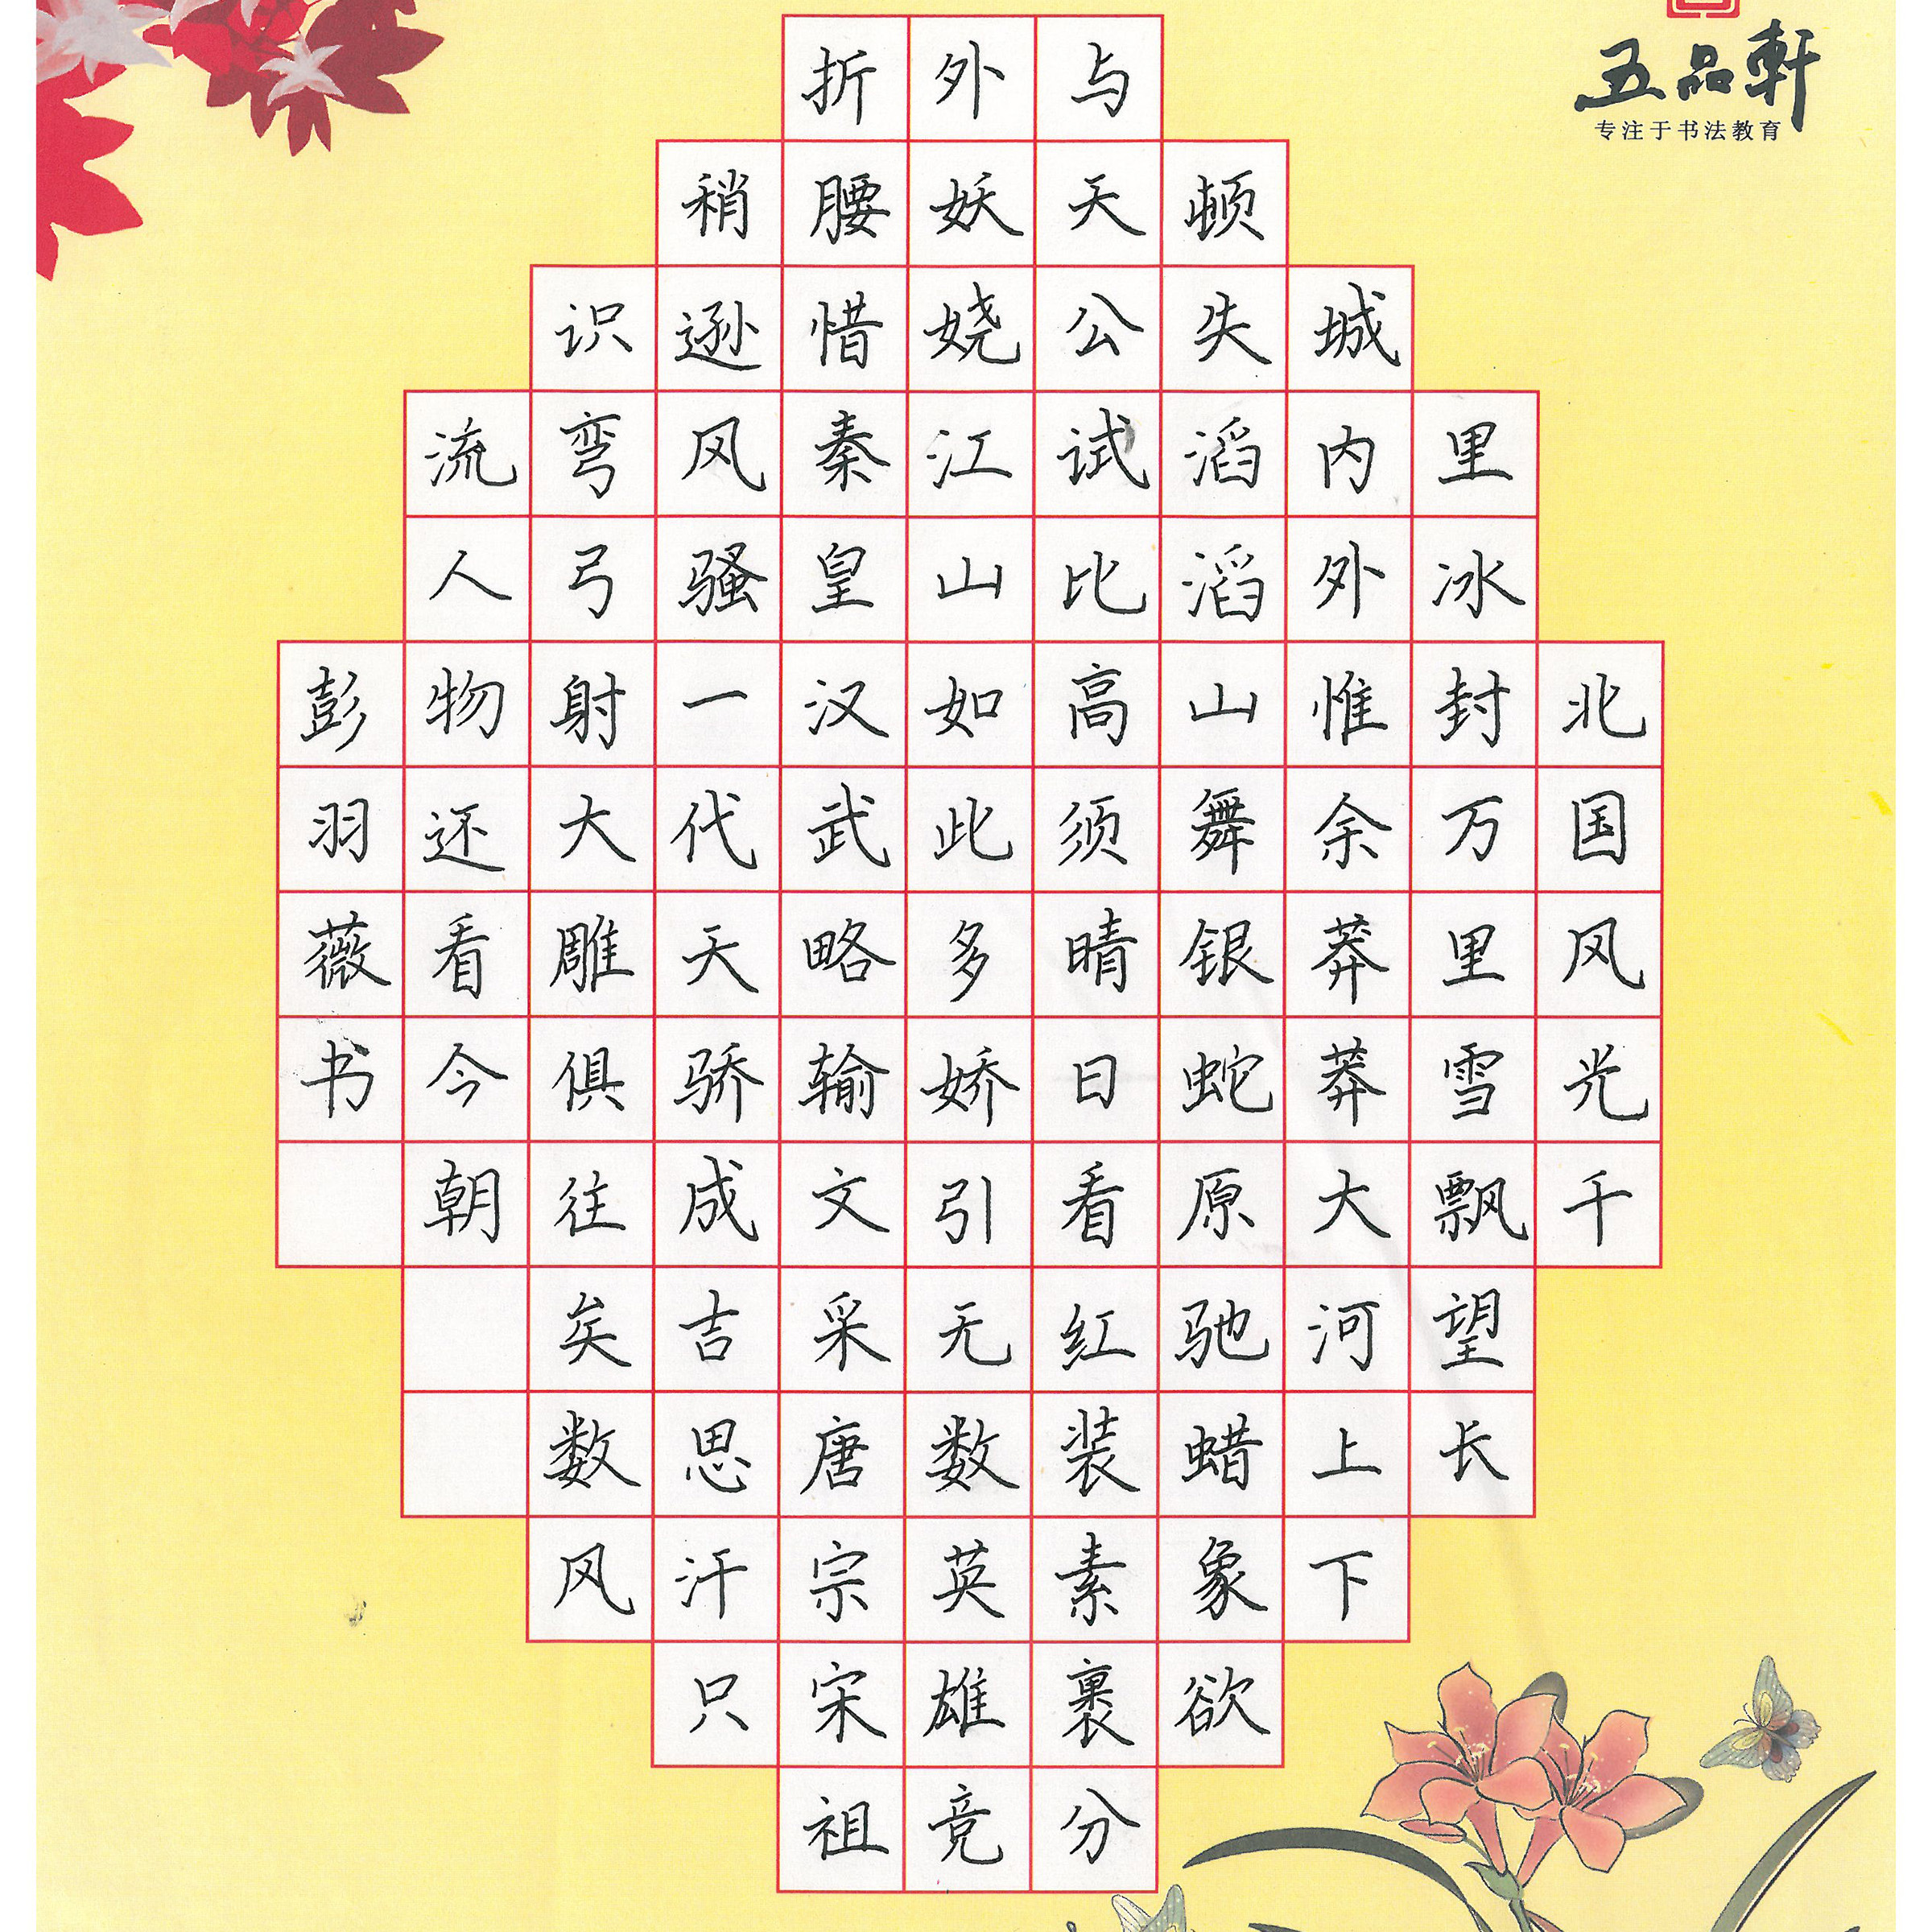 五品軒
专注于书法教育
北国风光千
里冰封万里雪飘望长
城内外惟余莽莽大河上下
顿失滔滔山舞银蛇原驰蜡象欲
与天公试比高须晴日看红装素裹分
外妖娆江山如此多娇引无数英雄竟
折腰惜秦皇汉武略输文采唐宗宋祖
稍逊风骚一代天骄成吉思汗只
识弯弓射大雕俱往矣数风
流人物还看今朝
彭羽薇书